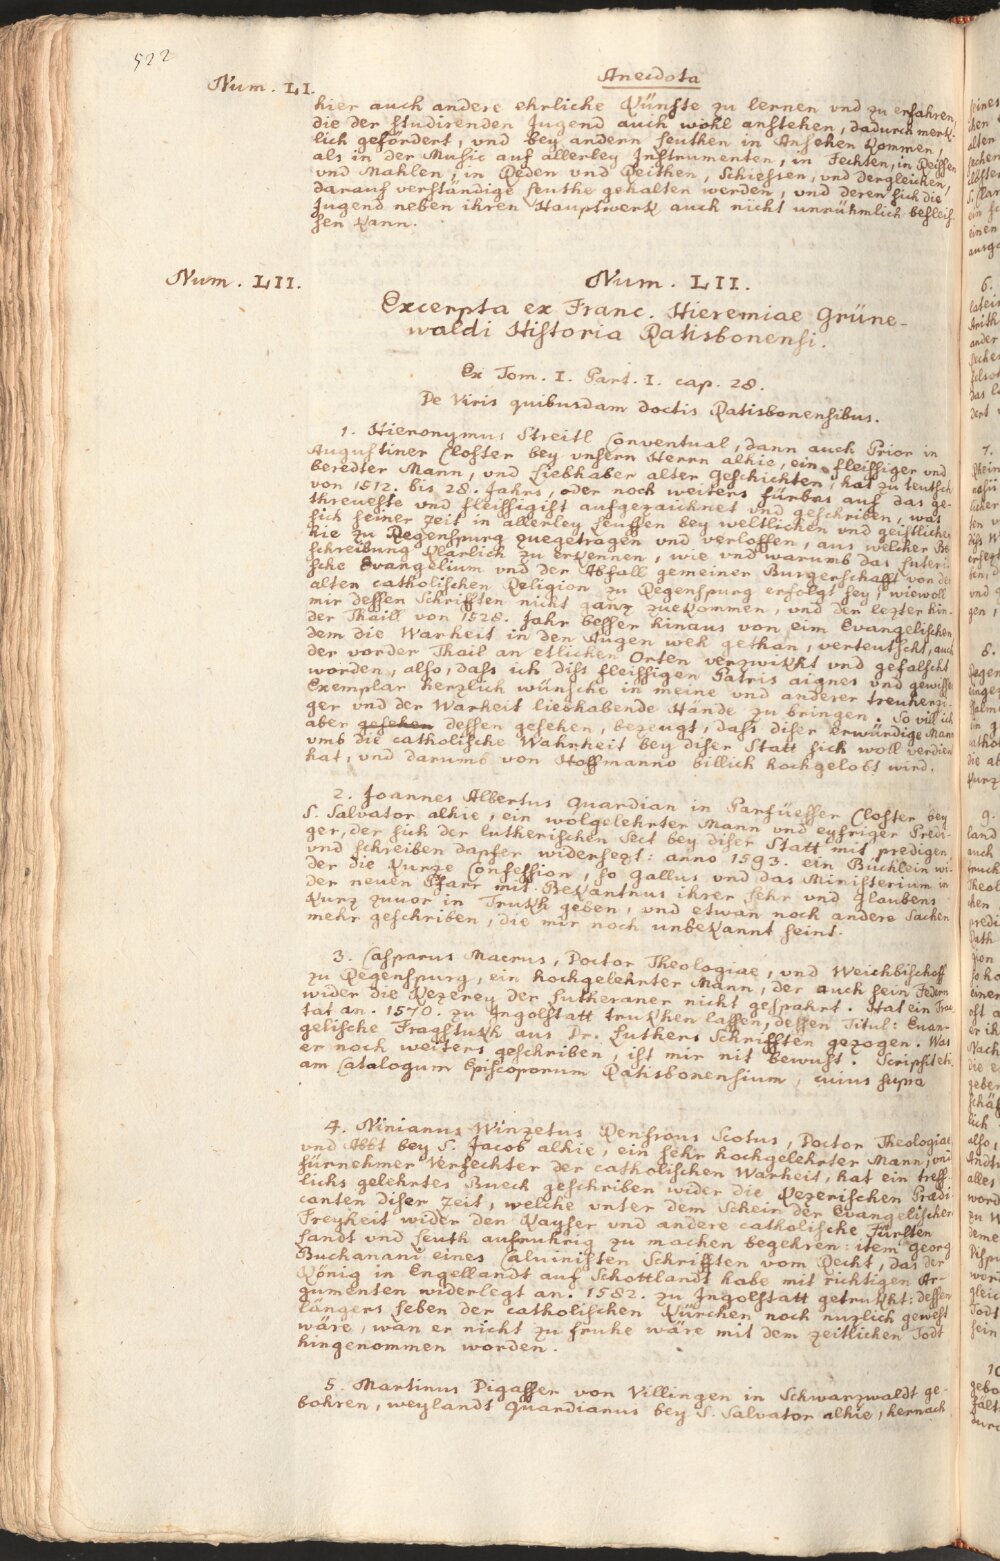 522
Anecdota
Num. LI.
hier auch andere ehrliche Künste zu lernen vnd zu erfahren,
die der studirenden Jugend auch wohl anstehen, dadurch merk-
lich gefördert, vnd bey andern Leuthen in Ansehen kommen,
als in der Music auf allerley Instrumenten, in Fechten, in Reissen
vnd Mahlen, in Reden vnd Reithen, Schiessen, vnd dergleichen,
darauf verständige Leuthe gehalten werden, vnd deren sich die
Jugend neben ihren Hauptwerk auch nicht unrühmlich befleis-
sen kann.
Num. LII.
Num. LII.
Excerpta ex Franc. Hieremiae Grüne-
waldi Historia Ratisbonensi.
Ex Tom. I. Part. I. cap. 28.
De Viris quibusdam doctis Ratisbonensibus.
1. Hieronymus Streitl Conventual, dann auch Prior in
Augustiner Closter bey vnsern Herrn alhie, ein fleissiger vnd
beredter Mann, vnd Liebhaber alter Geschichten, hat zu teutsch
von 1512. bis 28. Jahrs, oder noch weiters fürbas auf das ge-
threueste vnd fleissigist aufgezaichnet vnd geschriben, was
sich seiner Zeit in allerley Leuffen bey weltlichen vnd geistlichen
hie zu Regenspurg zuegetragen vnd verloffen, aus welcher Be-
schreibung klarlich zu erkennen, wie vnd warumb das Luteri-
sche Evangelium vnd der Abfall gemeiner Burgerschafft von der
alten catholischen Religion zu Regenspurg erfolgt sey, wiewoll
mir dessen Schrifften nicht ganz zuekommen, vnd der lezter hin-
der Thaill von 1528. Jahr besser hinaus von eim Evangelischen
dem die Warheit in den Augen weh gethan, verteutscht, auch
der vorder Thail an etlichen Orten verzwikht vnd gefalscht
worden, also, dass ich diss fleissigen Patris aignes vnd gewisses
Exemplar herzlich wünsche in meine vnd anderer treuherzi-
ger vnd der Warheit liebhabende Hände zu bringen. So vill ich
aber gesehen dessen gesehen, bezeugt, dass diser erwürdige Mann
vmb die catholische Wahrheit bey diser Statt sich woll verdien
hat, vnd darumb von Hoffmanno billich hochgelobt wird.
2. Joannes Albertus Quardian in Parfüesser Closter bey
S. Salvator alhie, ein wolgelehrter Mann vnd eyfriger Predi-
ger, der sich der lutherischen Sect bey diser Statt mit predigen
vnd schreiben dapfer widersezt: anno 1593. ein Büchlein wi-
der die kurze Confession, so Gallus vnd das Ministerium in
der neuen Pfarr mit Bekantnus ihrer Lehr vnd Glaubens
kurz zuuor in Trukh geben, vnd etwan noch andere Sachen
mehr geschriben, die mir noch unbekannt seint.
3. Casparus Macrus, Doctor Theologiae, vnd Weichbischoff
zu Regenspurg, ein hochgelehrter Mann, der auch sein Federn
wider die Kezerey der Lutheraner nicht gespahrt. Hat ein Trac
tat an. 1570. zu Ingolstatt trukhen lassen, dessen Titul: Euan-
gelische Fragstukh aus Dr. Luthers Schrifften gezogen. Was
er noch weiters geschriben, ist mir nit bewust. Scripsit eti-
am Catalogum Episcoporum Ratisbonensium, cuius supra
4. Ninianus Winzetus Renfrous Scotus, Doctor Theologiae
vnd Abbt bey S. Jacob alhie, ein sehr hochgelehrter Mann, vnd
fürnehmer Verfechter der catholischen Warheit, hat ein treff-
lichs gelehrtes Buech geschriben wider die Kezerischen Prædi-
canten diser Zeit, welche vnter dem Schein der Evangelischen
Freyheit wider den Kayser vnd andere catholische Fürsten
Landt vnd Leuth aufruhrig zu machen begehren: item Georg
Buchanani eines Caluinisten Schrifften vom Recht, das der
König in Engellandt auf Schottlandt habe mit richtigen Ar-
gumenten widerlegt an. 1582. zu Ingolstatt getrukht: dessen
längers Leben der catholischen Kürchen noch nuzlich gewest
wäre, wan er nicht zu fruhe wäre mit dem zeitlichen Todt
hingenommen worden.
5. Martinus Digasser von Villingen in Schwarzwaldt ge-
bohren, weylandt Quardianus bey S. Salvator alhie, hernach